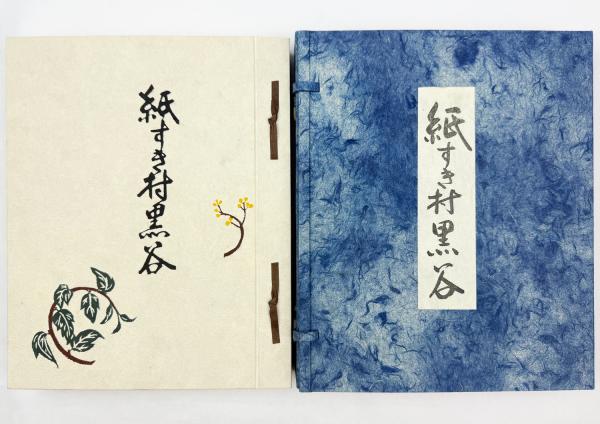 紙すき村黒谷
紙すき村黒谷